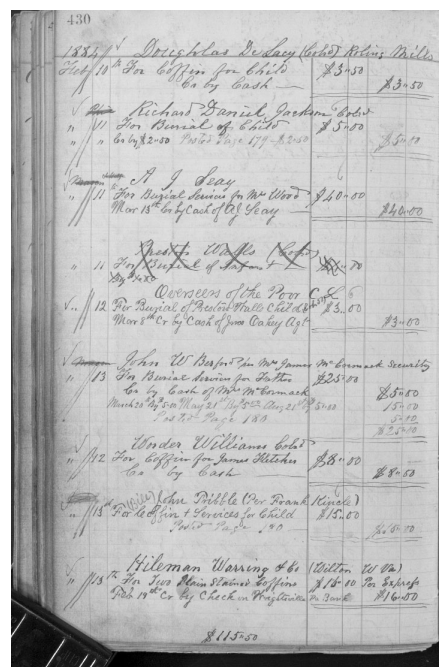 430
1884 Doughlas DeLacy (Cold) Roling Mills
Feb 10th For Coffin for Child $3.50
Cr by Cash $3.50
Richard Daniel Jackson Cold
" 11 For Burial of Child $5.00
" " Cr by $2.50 Posted Page 179 - $2.50 $5.00
A J Seay
" 11 For Burial Services for Mrs Wood $40.00
Mar 13th Cr by Cash of AJ Seay $40.00
Preston Walls (Cold)
" 11 For Burial of
Overseers of the Poor
" 12 For Burial of Preston Walls Child $3.00
Mar 8th Cr by Cash of Jno Oakey Agt $3.00
John W Besford per Mrs James McCormack Security
" 13 For Burial Service for Father $25.00
Cr by Cash of Mrs McCormack $5.00
March 20th By 5.00 May 21st By 5.00 Aug 21st By 5.00 15.00
Posted Page 180 5.00
$25.00
Wonder Williams Cold
" 12 For Coffin for James Fletcher $8.00
Cr by Cash $8.00
John Pribble (Per Frank Kincle)
" 15th For Coffin & Services for Child $15.00
Posted Page 180 $15.00
Hileman Warring & Co (Wilton W Va)
" 18th For Two Plain Stained Coffins $16.00 Per Express
Feb 19th Cr by Check on Bank $16.00
$115.50